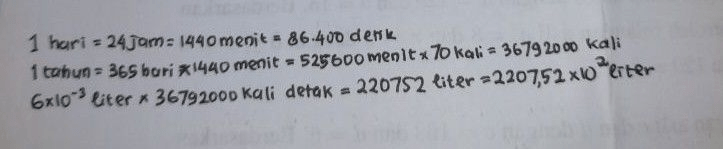 1 hari = 24 jam = 1440 menit = 86.400 detik
1 tahun = 365 hari × 1440 menit = 525600 menit × 70 kali = 36792000 kali
6×10⁻³ liter × 36792000 kali detak = 220752 liter = 2207,52 ×10² liter